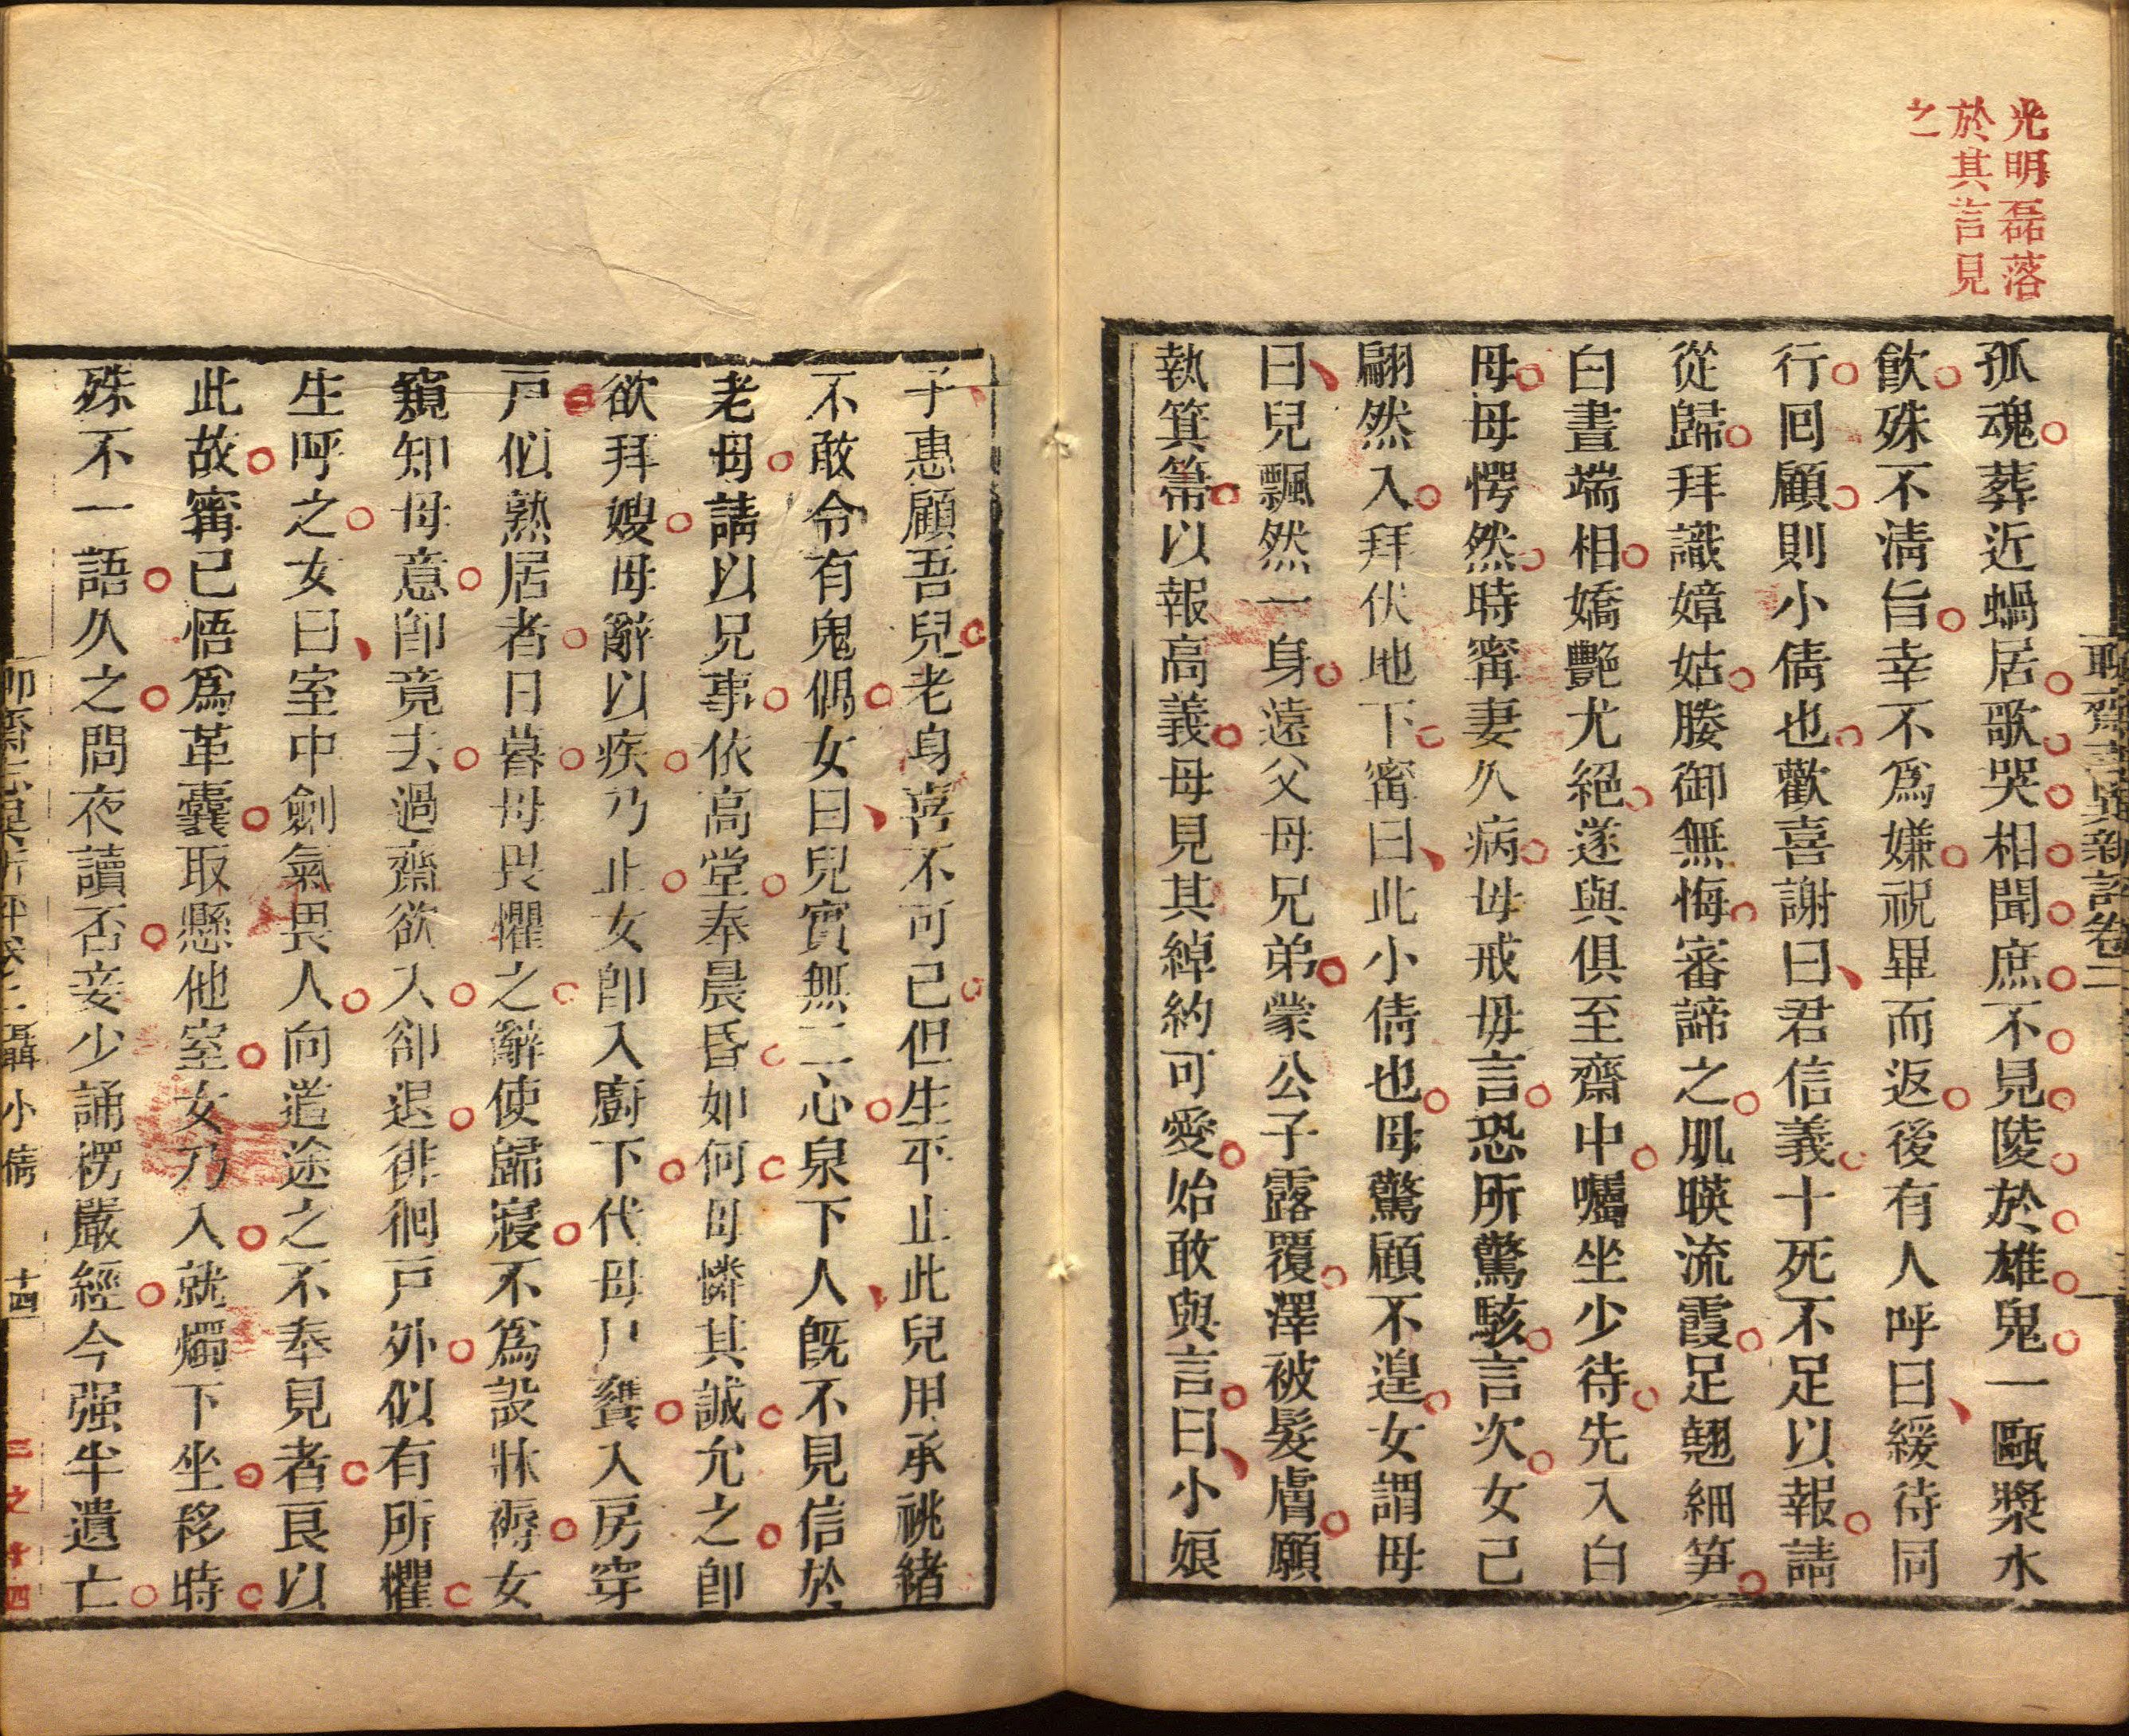 光明磊落
於其言見
之
聊齋志異新評卷二
孤魂葬近蝸居歌哭相聞庶不見陵於雄鬼一甌漿水
飲殊不淸旨幸不爲嫌祝畢而返後有人呼曰緩待同
行囘顧則小倩也歡喜謝曰君信義十死不足以報請
從歸拜識嫜姑媵御無悔審諦之肌暎流霞足翹細笋
白晝端相嬌艷尤絕遂與俱至齋中囑坐少待先入白
母母愕然時甯妻久病母戒毋言恐所驚駭言次女已
翩然入拜伏地下甯曰此小倩也母驚顧不遑女謂母
曰兒飄然一身遠父母兄弟蒙公子露覆澤被髮膚願
執箕箒以報高義母見其綽約可愛始敢與言曰小娘
子惠顧吾兒老身喜不可已但生平止此兒用承祧緒
不敢令有鬼偶女曰兒實無二心泉下人旣不見信於
老母請以兄事依高堂奉晨昏如何母憐其誠允之卽
欲拜嫂母辭以疾乃止女卽入廚下代母尸饔入房穿
戶似熟居者日暮母畏懼之辭使歸寢不爲設牀褥女
窺知母意卽竟去過齋欲入卻退徘徊戶外似有所懼
生呼之女曰室中劍氣畏人向道途之不奉見者良以
此故甯已悟爲革囊取懸他室女乃入就燭下坐移時
殊不一語久之問夜讀否妾少誦楞嚴經今强半遺亡
聶小倩
十四
二之十四